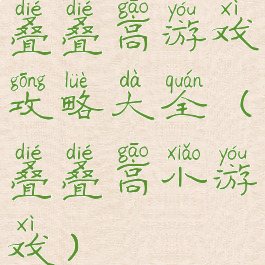 dié dié gāo yóu xì
叠叠高游戏
gōng lüè dà quán
攻略大全（
dié dié gāo xiǎo yóu
叠叠高小游
xì
戏）